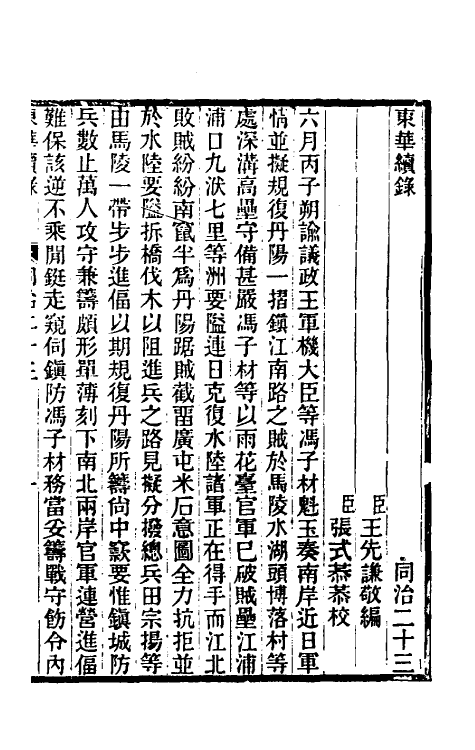 東華續錄
同治二十三
臣王先謙敬編
臣張式恭恭校
六月丙子朔諭議政王軍機大臣等馮子材魁玉奏南岸近日軍
情並擬規復丹陽一摺鎭江南路之賊於馬陵水湖頭博落村等
處深溝高壘守備甚嚴馮子材等以雨花臺官軍已破賊壘江浦
浦口九洑七里等洲要隘連日克復水陸諸軍正在得手而江北
敗賊紛紛南竄半爲丹陽踞賊截畱廣屯米石意圖全力抗拒並
於水陸要隘折橋伐木以阻進兵之路見擬分撥總兵田宗揚等
由馬陵一帶步步進偪以期規復丹陽所籌尙中窾要惟鎭城防
兵數止萬人攻守兼籌頗形單薄刻下南北兩岸官軍連營進偪
難保該逆不乘閒鋌走窺伺鎭防馮子材務當妥籌戰守飭令內
東華續錄 同治二十三 一